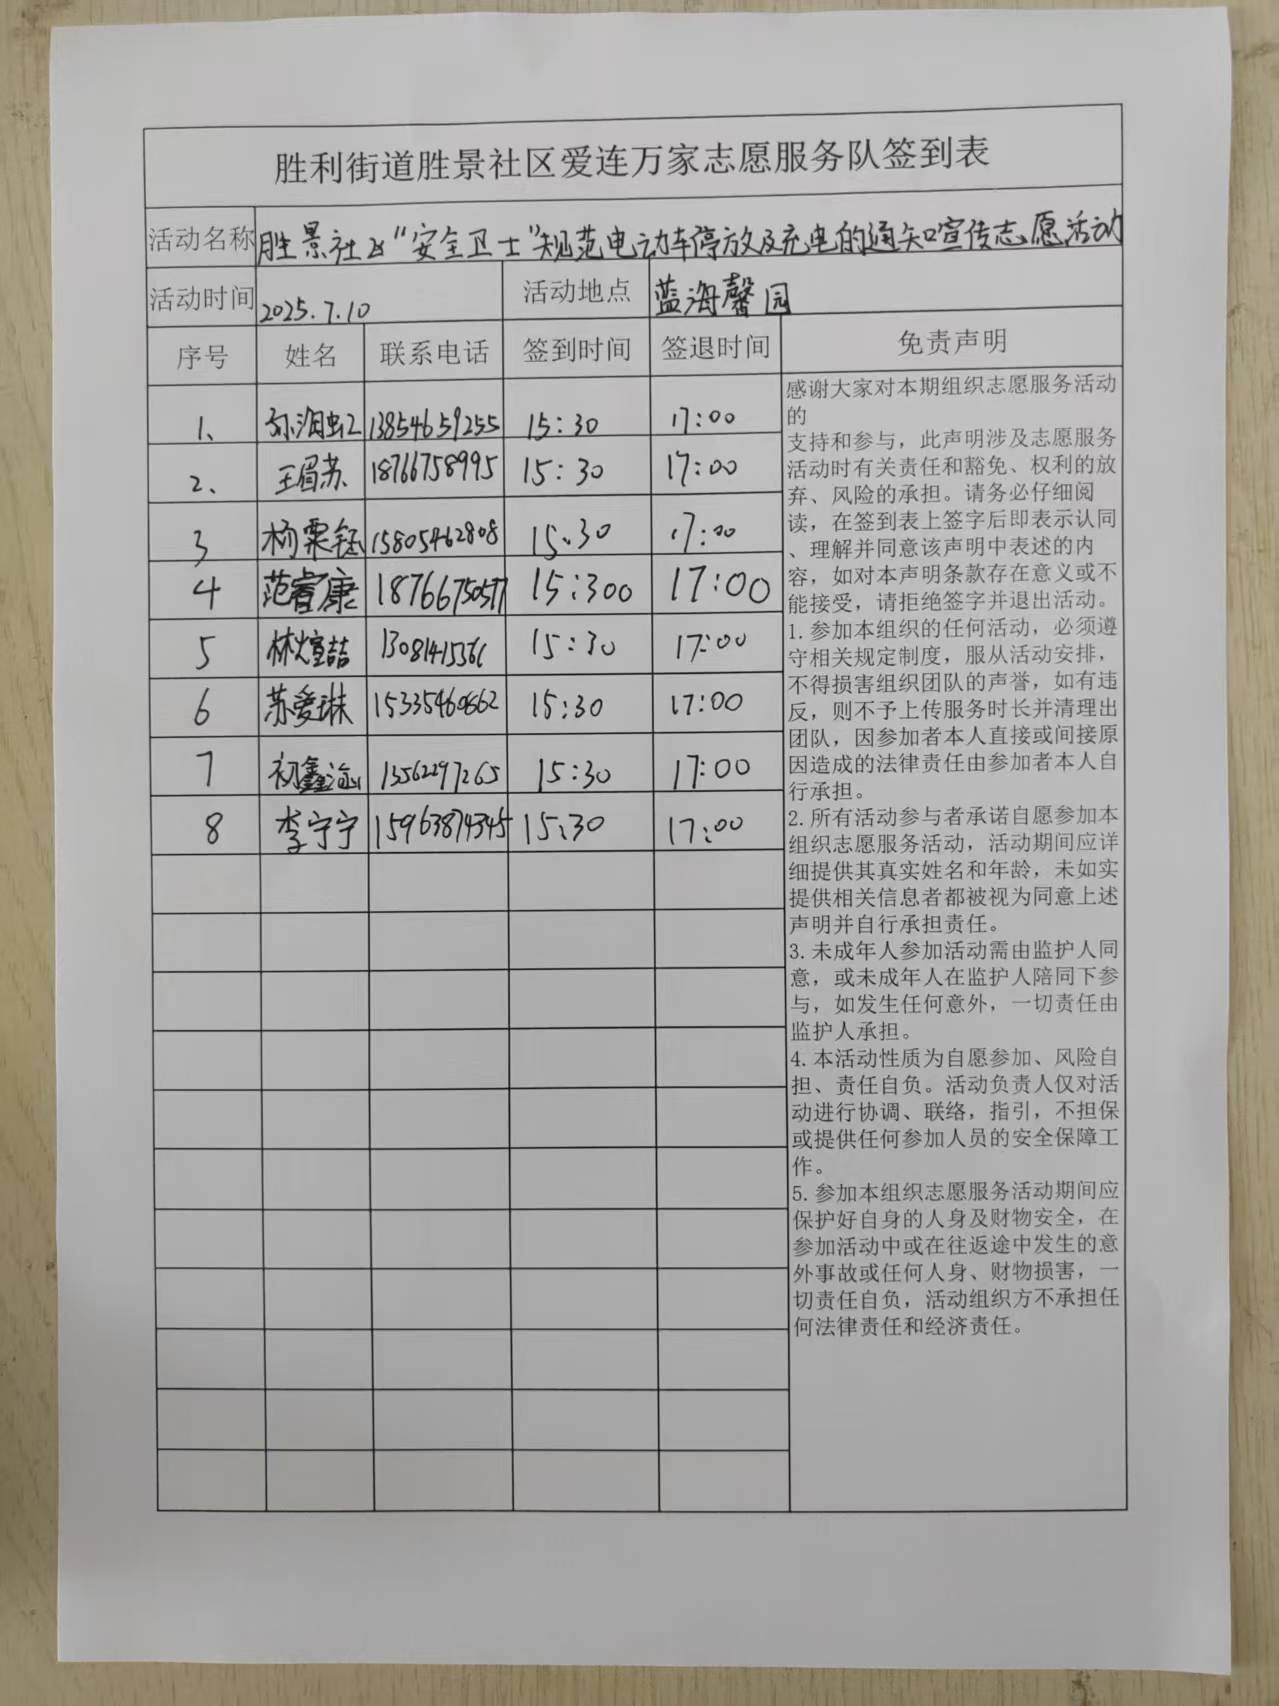 胜利街道胜景社区爱连万家志愿服务队签到表
活动名称 胜景社区"安全卫士"规范电动车停放及充电的通知宣传志愿活动
活动时间 2025.7.10 活动地点 蓝海馨园
序号 姓名 联系电话 签到时间 签退时间 免责声明
1、 13854659255 15:30 17:00
2、 王眉苏 18766758995 15:30 17:00
3 杨霖钰 15805462808 15:30 17:00
4 范睿康 18766750577 15:300 17:00
5 林煊喆 13081415361 15:30 17:00
6 苏爱琳 15335460662 15:30 17:00
7 初鑫 15562297265 15:30 17:00
8 李宁宁 15963874345 15:30 17:00
感谢大家对本期组织志愿服务活动
的
支持和参与，此声明涉及志愿服务
活动时有关责任和豁免、权利的放
弃、风险的承担。请务必仔细阅
读，在签到表上签字后即表示认同
、理解并同意该声明中表述的内
容，如对本声明条款存在意义或不
能接受，请拒绝签字并退出活动。
1.参加本组织的任何活动，必须遵
守相关规定制度，服从活动安排，
不得损害组织团队的声誉，如有违
反，则不予上传服务时长并清理出
团队，因参加者本人直接或间接原
因造成的法律责任由参加者本人自
行承担。
2.所有活动参与者承诺自愿参加本
组织志愿服务活动，活动期间应详
细提供其真实姓名和年龄，未如实
提供相关信息者都被视为同意上述
声明并自行承担责任。
3.未成年人参加活动需由监护人同
意，或未成年人在监护人陪同下参
与，如发生任何意外，一切责任由
监护人承担。
4.本活动性质为自愿参加、风险自
担、责任自负。活动负责人仅对活
动进行协调、联络，指引，不担保
或提供任何参加人员的安全保障工
作。
5.参加本组织志愿服务活动期间应
保护好自身的人身及财物安全，在
参加活动中或在往返途中发生的意
外事故或任何人身、财物损害，一
切责任自负，活动组织方不承担任
何法律责任和经济责任。